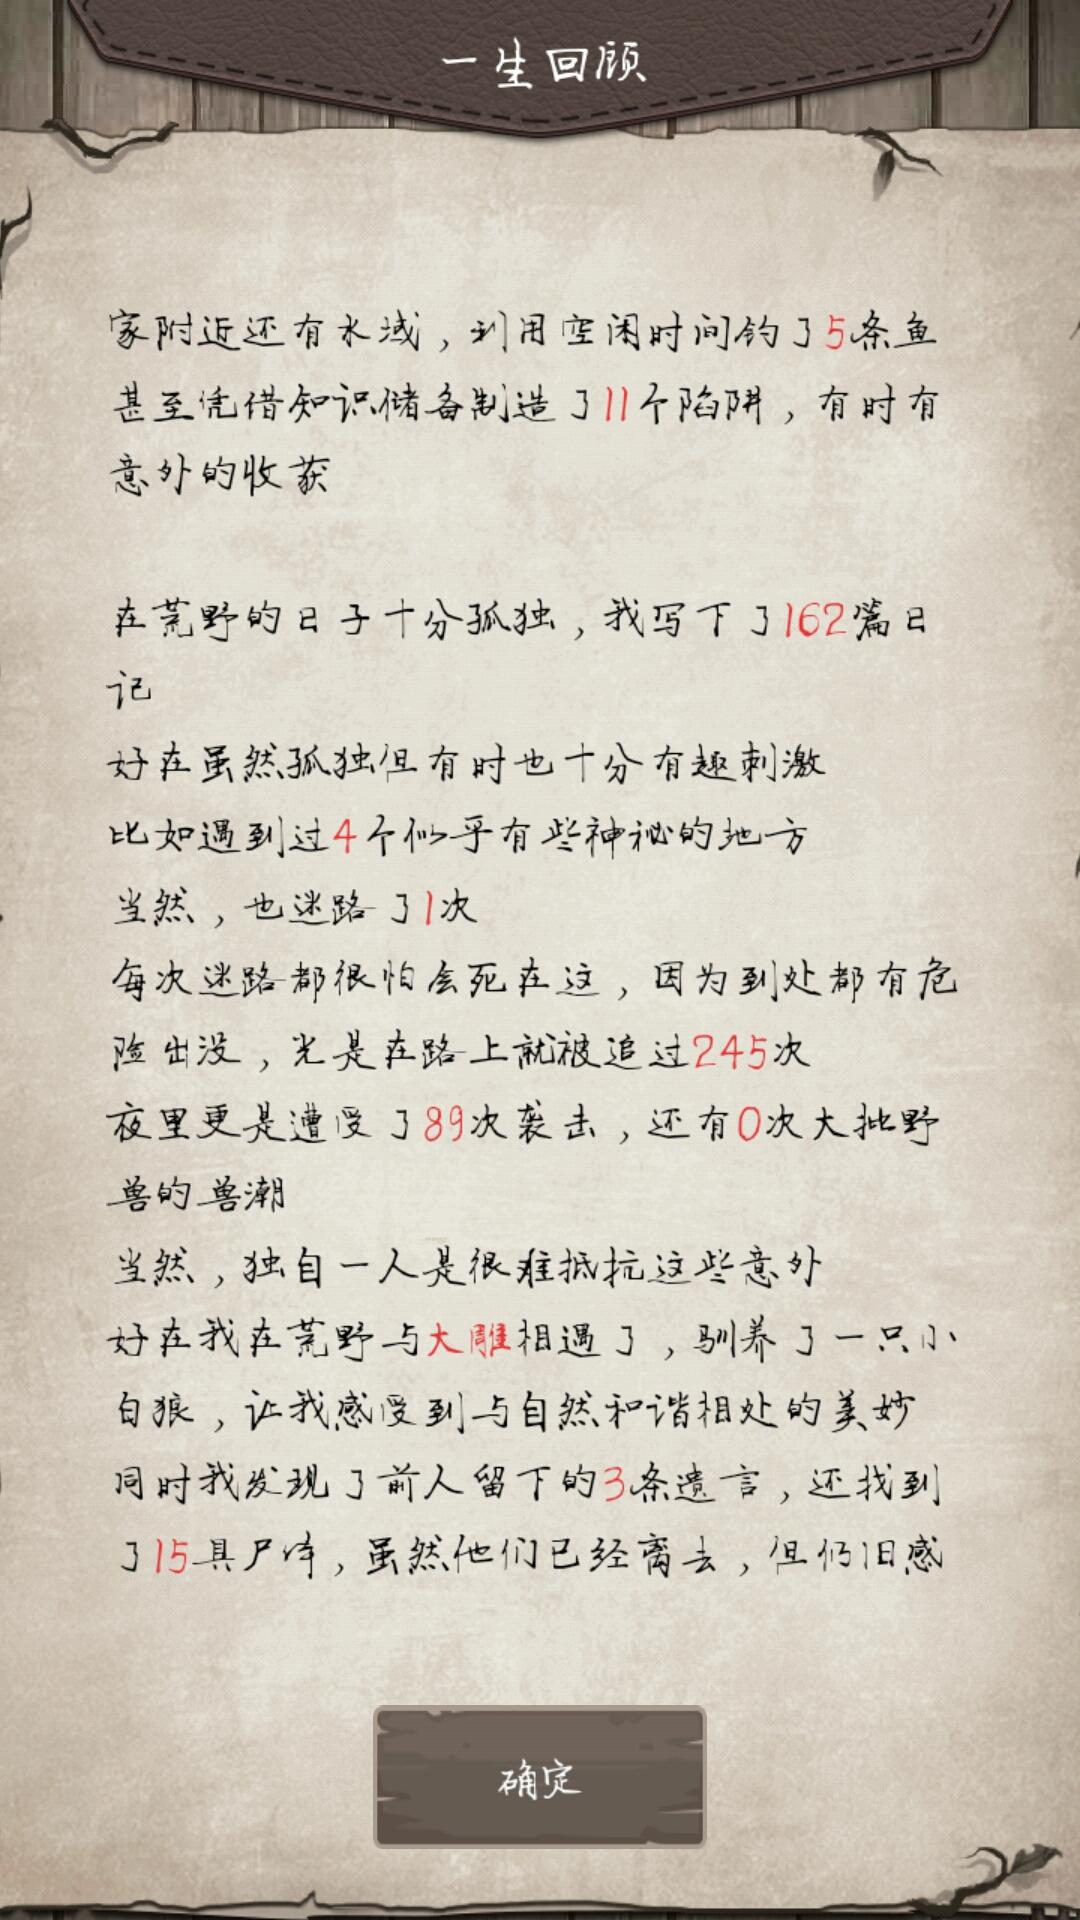 一生回顾
家附近还有水域，利用空闲时间钓了5条鱼
甚至凭借知识储备制造了11个陷阱，有时有
意外的收获
在荒野的日子十分孤独，我写下了162篇日
记
好在虽然孤独但有时也十分有趣刺激
比如遇到过4个似乎有些神秘的地方
当然，也迷路了1次
每次迷路都很怕会死在这，因为到处都有危
险出没，光是在路上就被追过245次
夜里更是遭受了89次袭击，还有0次大批野
兽的兽潮
当然，独自一人是很难抵抗这些意外
好在我在荒野与大雕相遇了，驯养了一只小
白狼，让我感受到与自然和谐相处的美妙
同时我发现了前人留下的3条遗言，还找到
了15具尸体，虽然他们已经离去，但仍旧感
确定